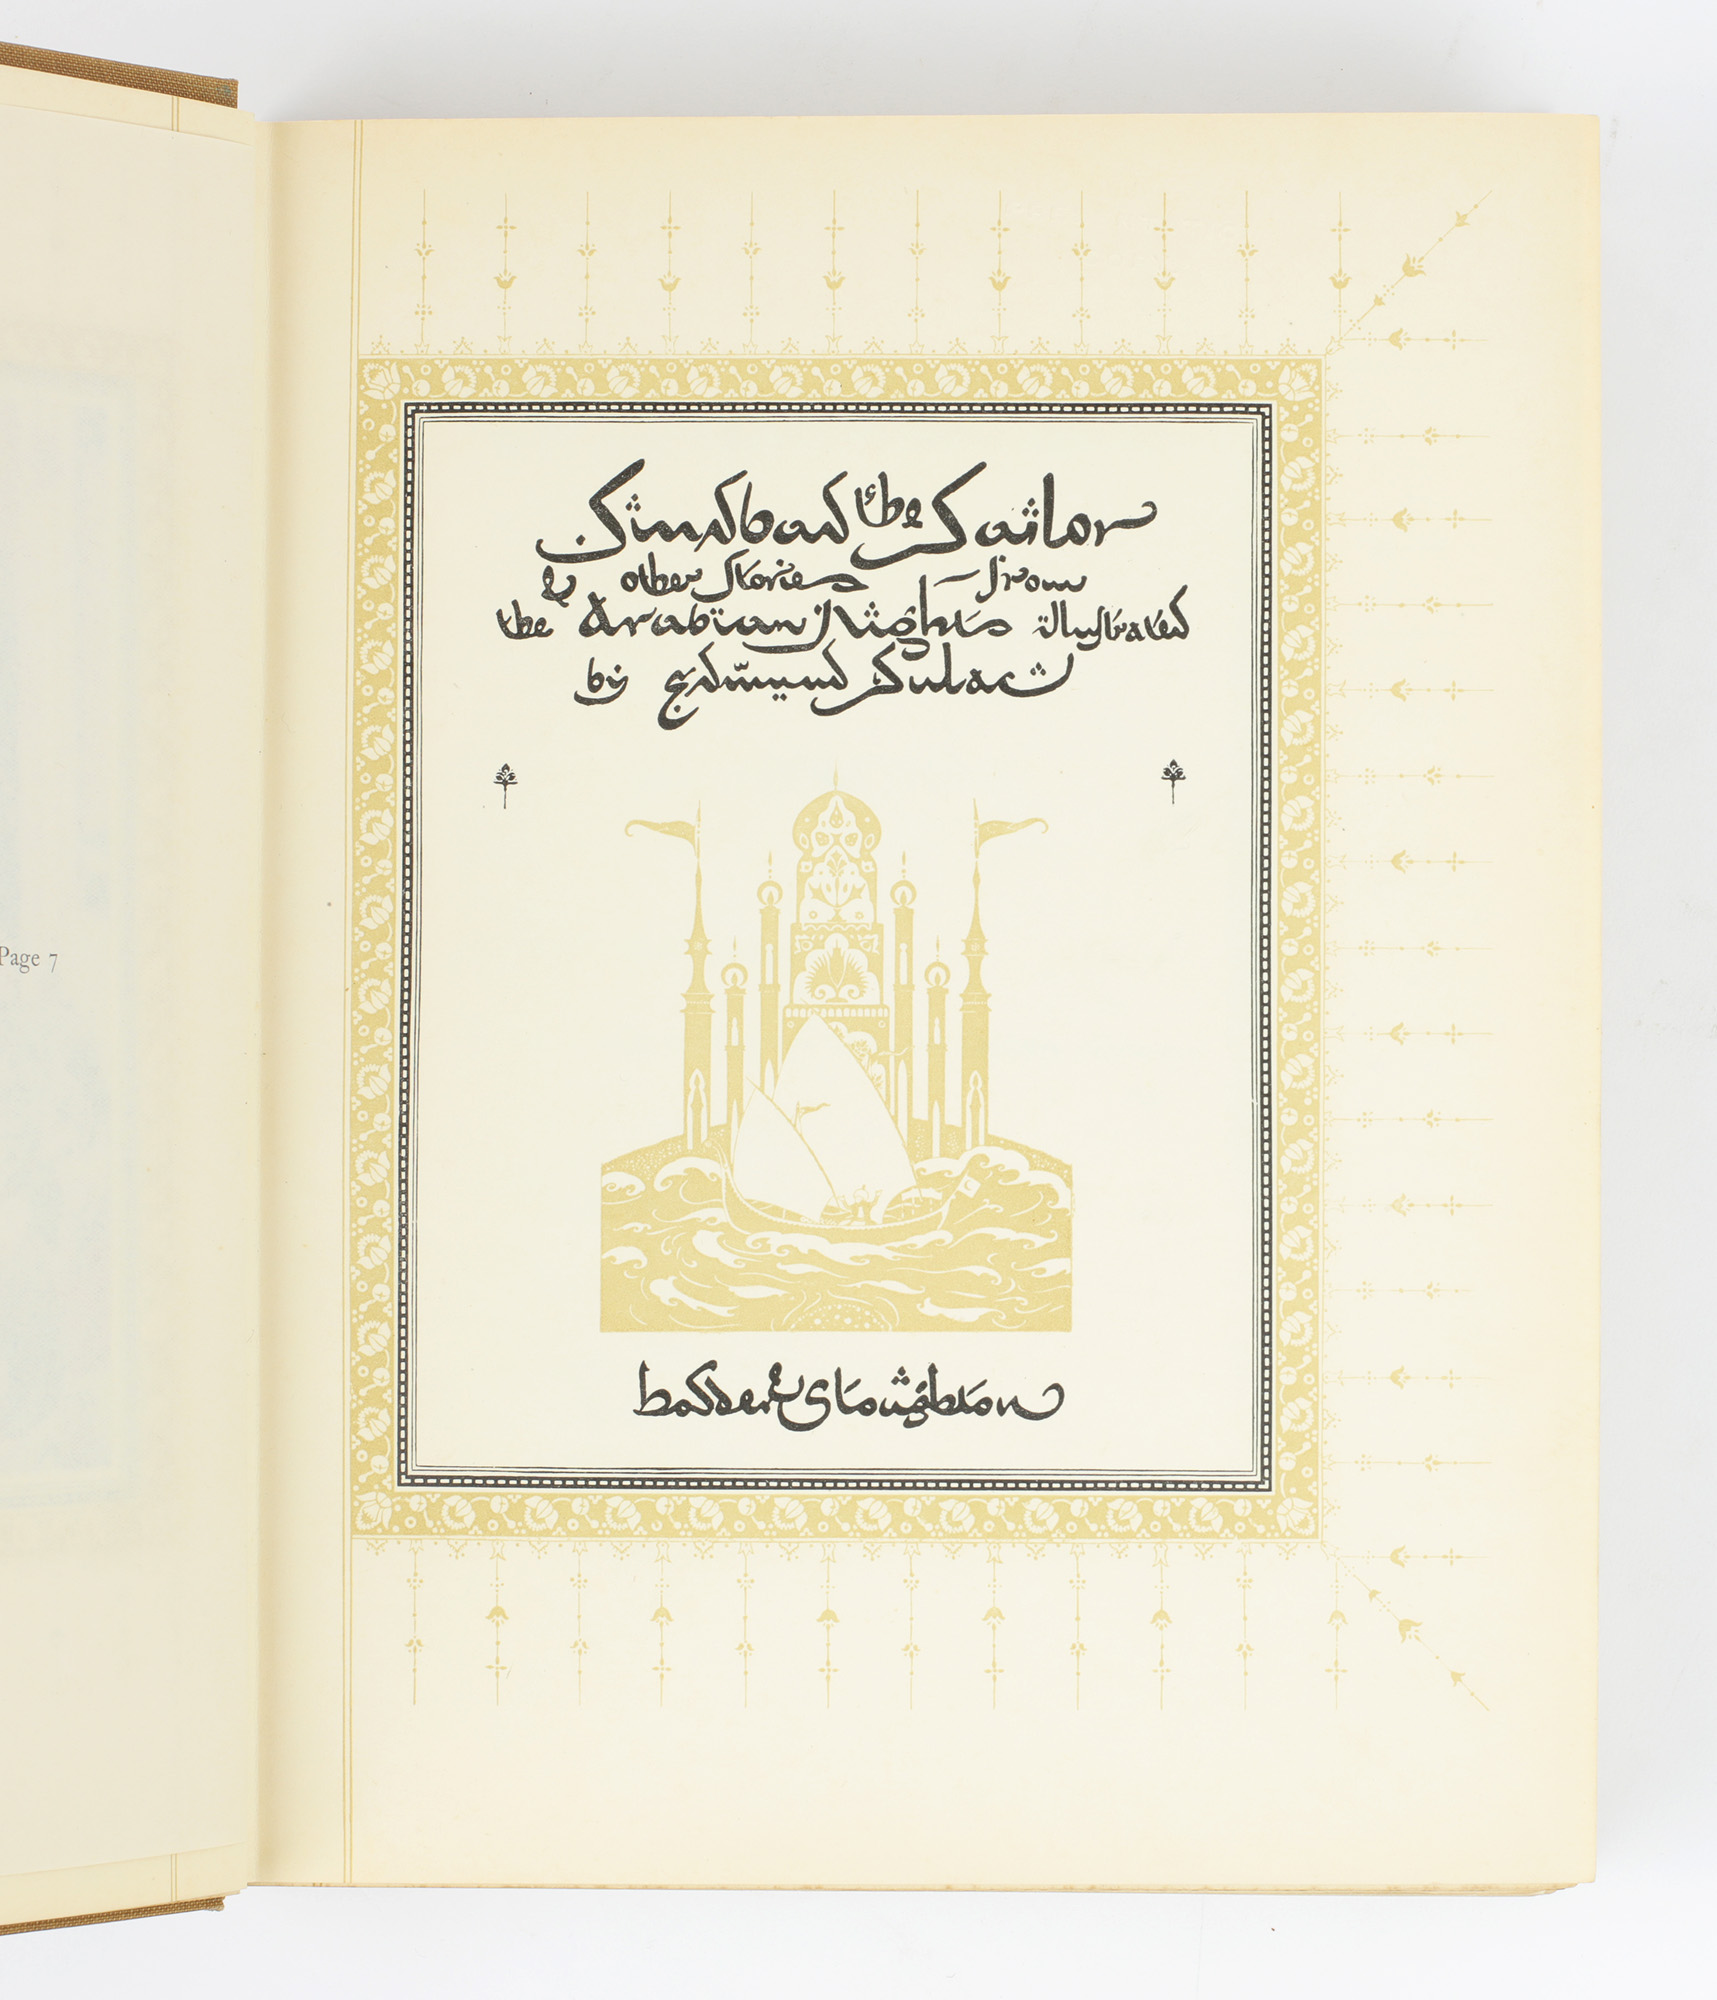 Page 7
Sindbad the Sailor
& other stories from
the Arabian Nights illustrated
by Edmund Dulac
hodder & Stoughton